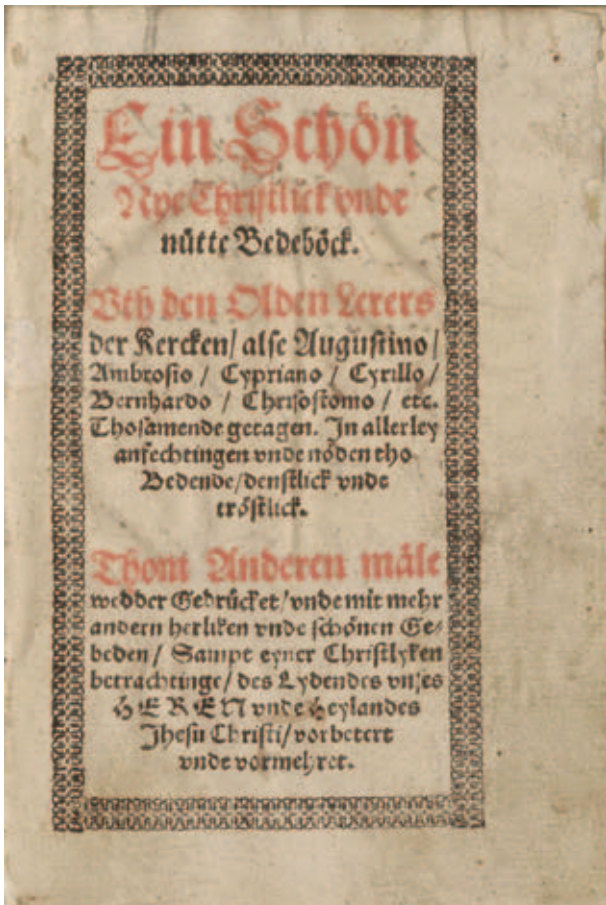 Ein Schön
Nye Christlick vnde
nütte Bedeböck.
Vth den Olden Lerers
der Kercken/ alse Augustino/
Ambrosio / Cypriano / Cyrillo/
Bernhardo / Chrisostomo / etc.
Thosamende getagen. In allerley
anfechtingen vnde nöden tho
Bedende/denstlick vnde
tröstlick.
Thom Anderen mäle
wedder Gedrücket/vnde mit mehr
andern herliken vnde schönen Ge-
beden/ Sampt eyner Christlyken
betrachtinge/ des Lydendes vnses
HEREN vnde Heylandes
Jhesu Christi/vorbetert
vnde vormehret.